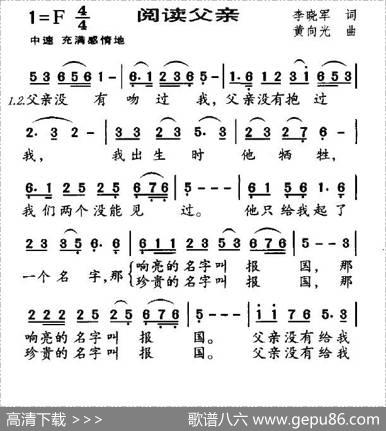 1=F 4/4 阅读父亲 李晓军 词
中速 充满感情地 黄向光 曲
5 3 5 6 5 6 1 - | 6· 1 1 2 3 6 5 - | 1· 6 1 2 3 3 1 6 |
1.2.父亲没 有 吻过 我，父亲没有抱 过
2· 3 2 - - | 3 3· 2 3 5· | 2 3 2 7 6· |
我， 我出生 时 他 牺 牲，
6· 1 2 5 2 5 6 7 6 | 5 - - - | 5 1 5 6 1· 6 |
我们两个没能见 过。 他只给我起了
2 3 2 3 5 6· 6 | 6 1 1 2 3 5 3 7 6 | 5 - - 3 |
一个名 字，那 响亮的名字叫 报 国，那
珍贵的名字叫 报 国，那
2 2 2 2 5 2 5 6 7 6 | 5 - - - | i i 7 6 5 3 |
响亮的名字叫 报 国。 父亲没有给我
珍贵的名字叫 报 国。 父亲没有给我
高清下载 >>> 歌谱八六 © www.gepu86.com